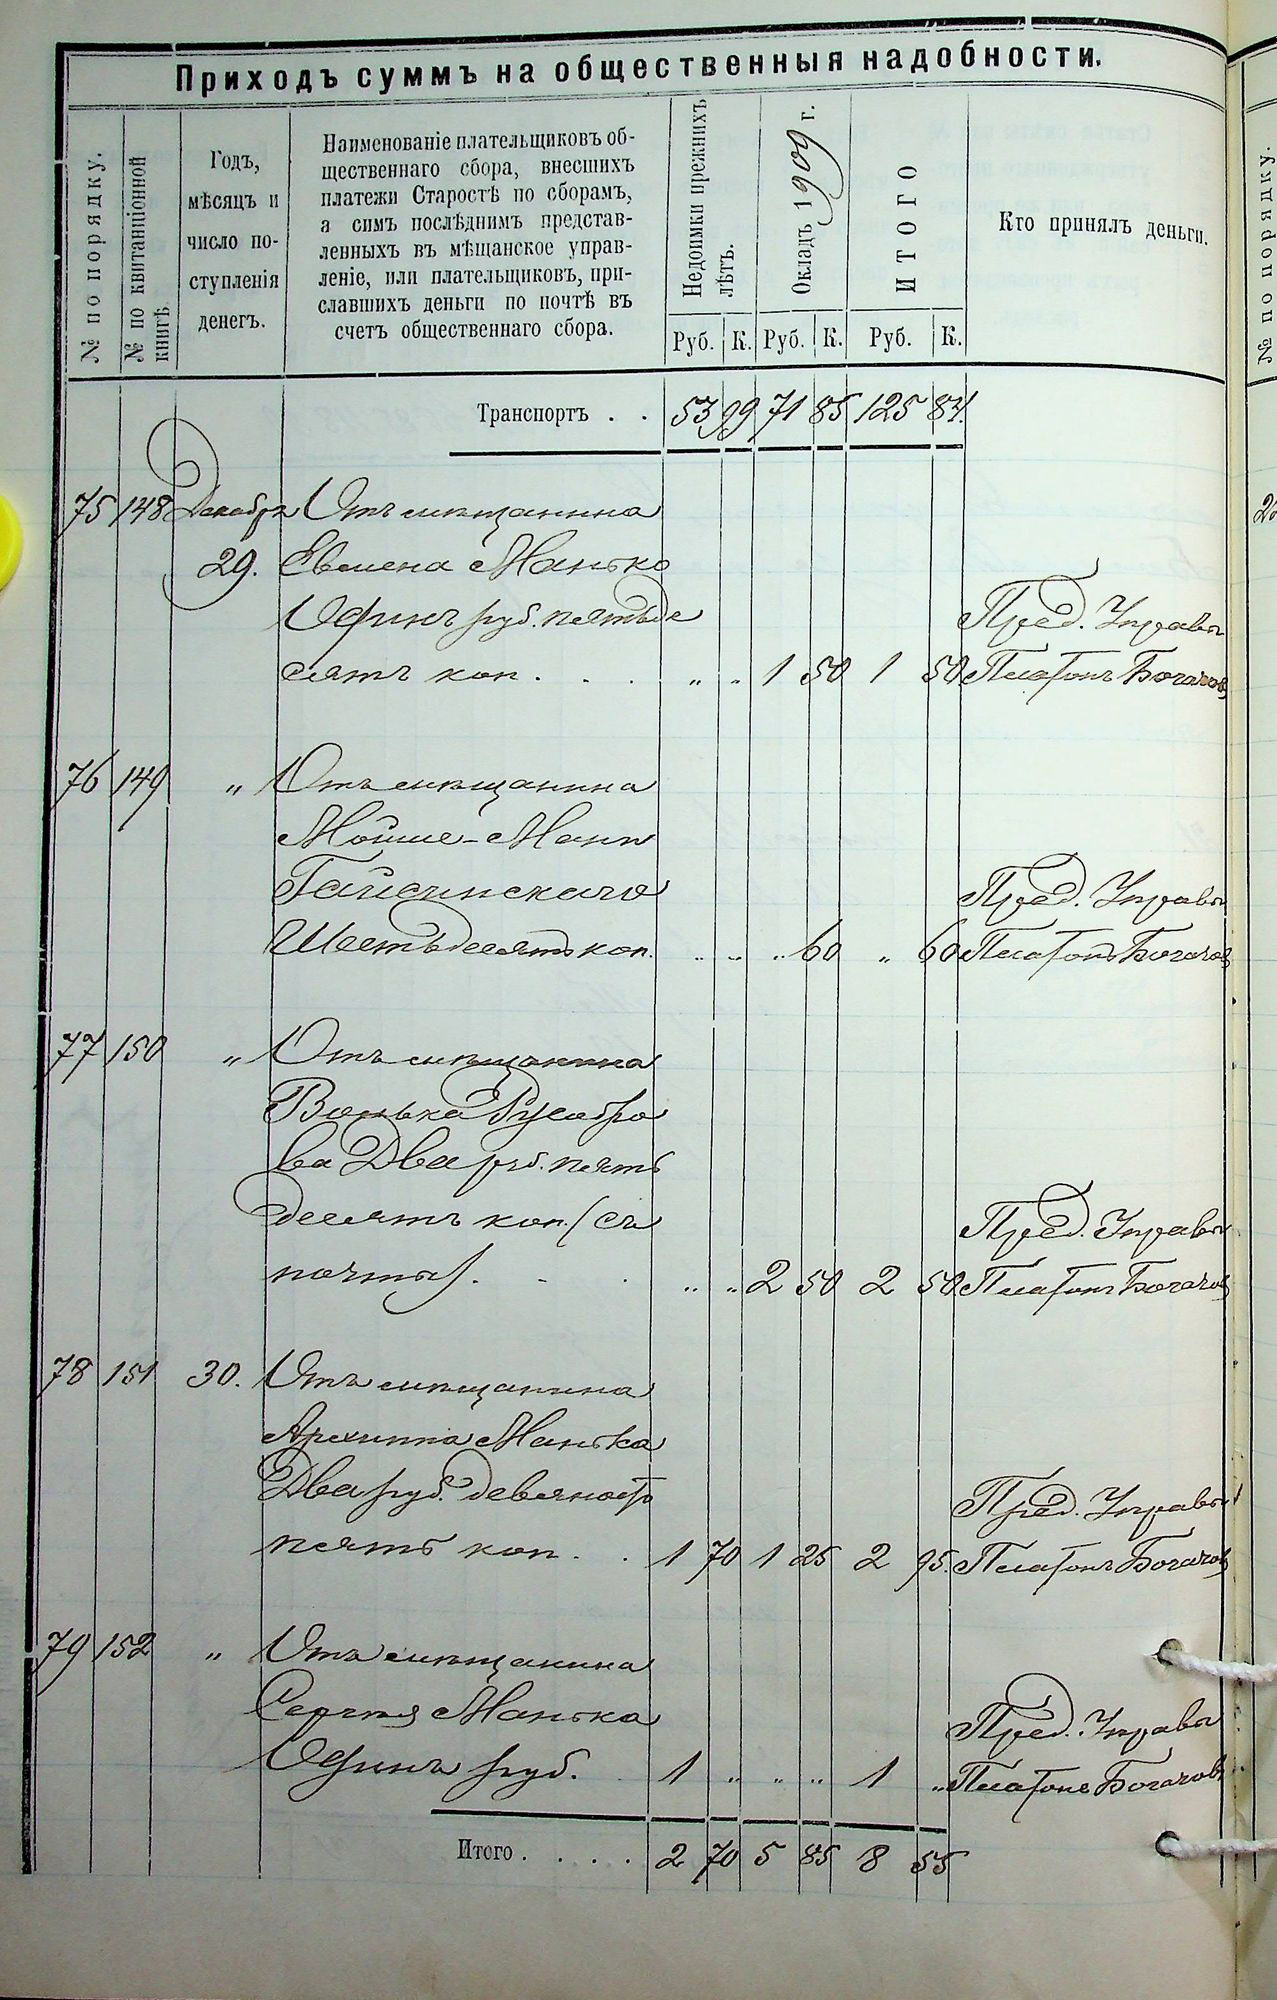 Приходъ суммъ на общественныя надобности.
№ по порядку.
№ по квитанціонной книгѣ.
Годъ,
мѣсяцъ и
число по-
ступленія
денегъ.
Наименованіе плательщиковъ об-
щественнаго сбора, внесшихъ
платежи Старостѣ по сборамъ,
а симъ послѣднимъ представ-
ленныхъ въ мѣщанское управ-
леніе, или плательщиковъ, при-
славшихъ деньги по почтѣ въ
счетъ общественнаго сбора.
Недоимки прежнихъ лѣтъ.
Окладъ 1909 г.
ИТОГО
Кто принялъ деньги.
Руб. К. Руб. К. Руб. К.
Транспортъ . . 53 99 71 85 125 84.
75 148 Декабря Отъ мѣщанина
29. Евмена Манько
Одинъ руб. пятьде Пред. Управы
сятъ коп. . . . " " 1 50 1 50 Платонъ Богачов
76 149 " Отъ мѣщанина
Мойше-Мани
Гайсинскаго Пред. Управы
Шестьдесятъ коп. " " " 60 " 60 Платонъ Богачов
77 150 " Отъ мѣщанина
Волька
ва Два руб. пять
десятъ коп. (съ Пред. Управы
почты). . . " " 2 50 2 50 Платонъ Богачов
78 151 30. Отъ мѣщанина
Архиппа Манька
Два руб. девяносто Пред. Управы
пять коп. . . 1 70 1 25 2 95. Платонъ Богачов
79 152 " Отъ мѣщанина
Сергѣя Манька Пред. Управы
Одинъ руб. . 1 " " " 1 " Платонъ Богачовъ
Итого . . . . 2 70 5 85 8 55
№ по порядку.